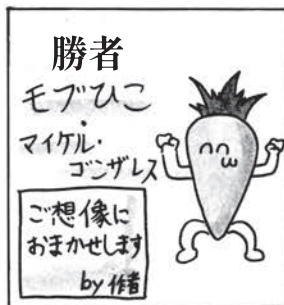 勝者
モブひこ
・
マイケル・
ゴンザレス
ご想像に
おまかせします
by 作者